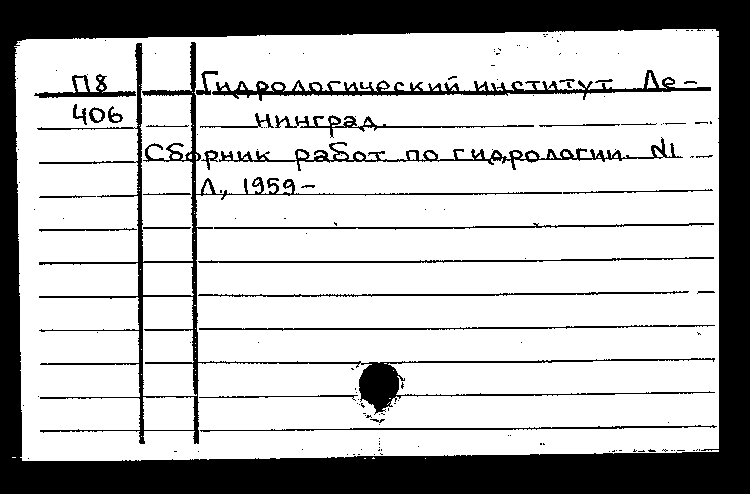 П8 Гидрологический институт. Ле-
406 нинград.
Сборник работ по гидрологии. №1
Л., 1959-